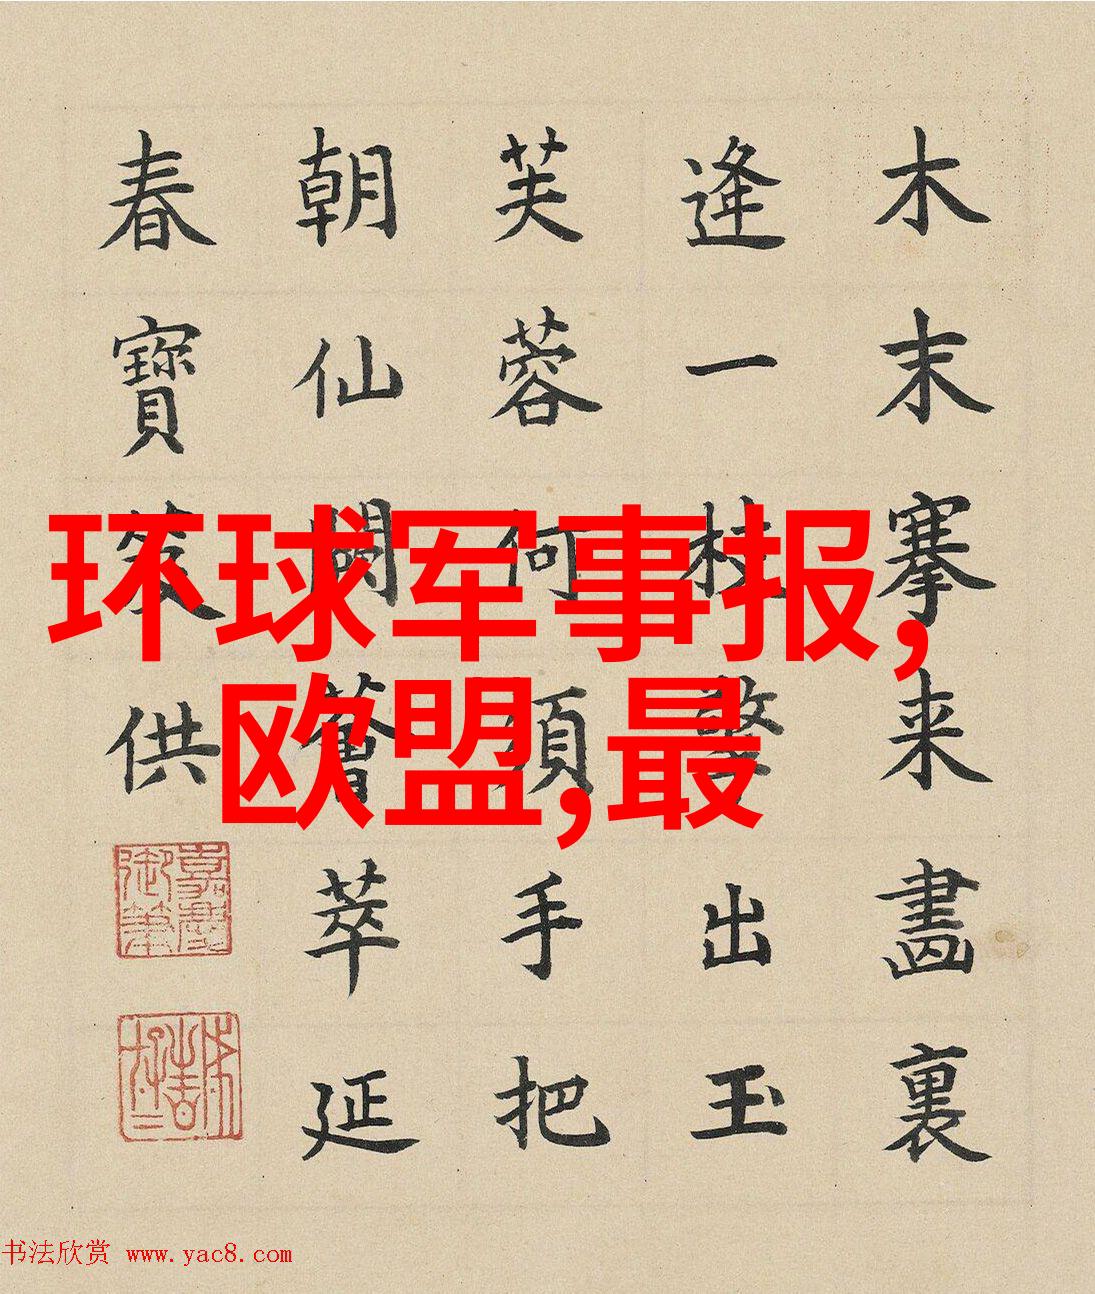 木末搴来畫裏
逢一柱擎出玉
芙蓉何須手把
朝仙闕薈萃延
春寶笈供
嘉慶御筆
环球军事报,
欧盟,最
书法欣赏 www.yac8.com